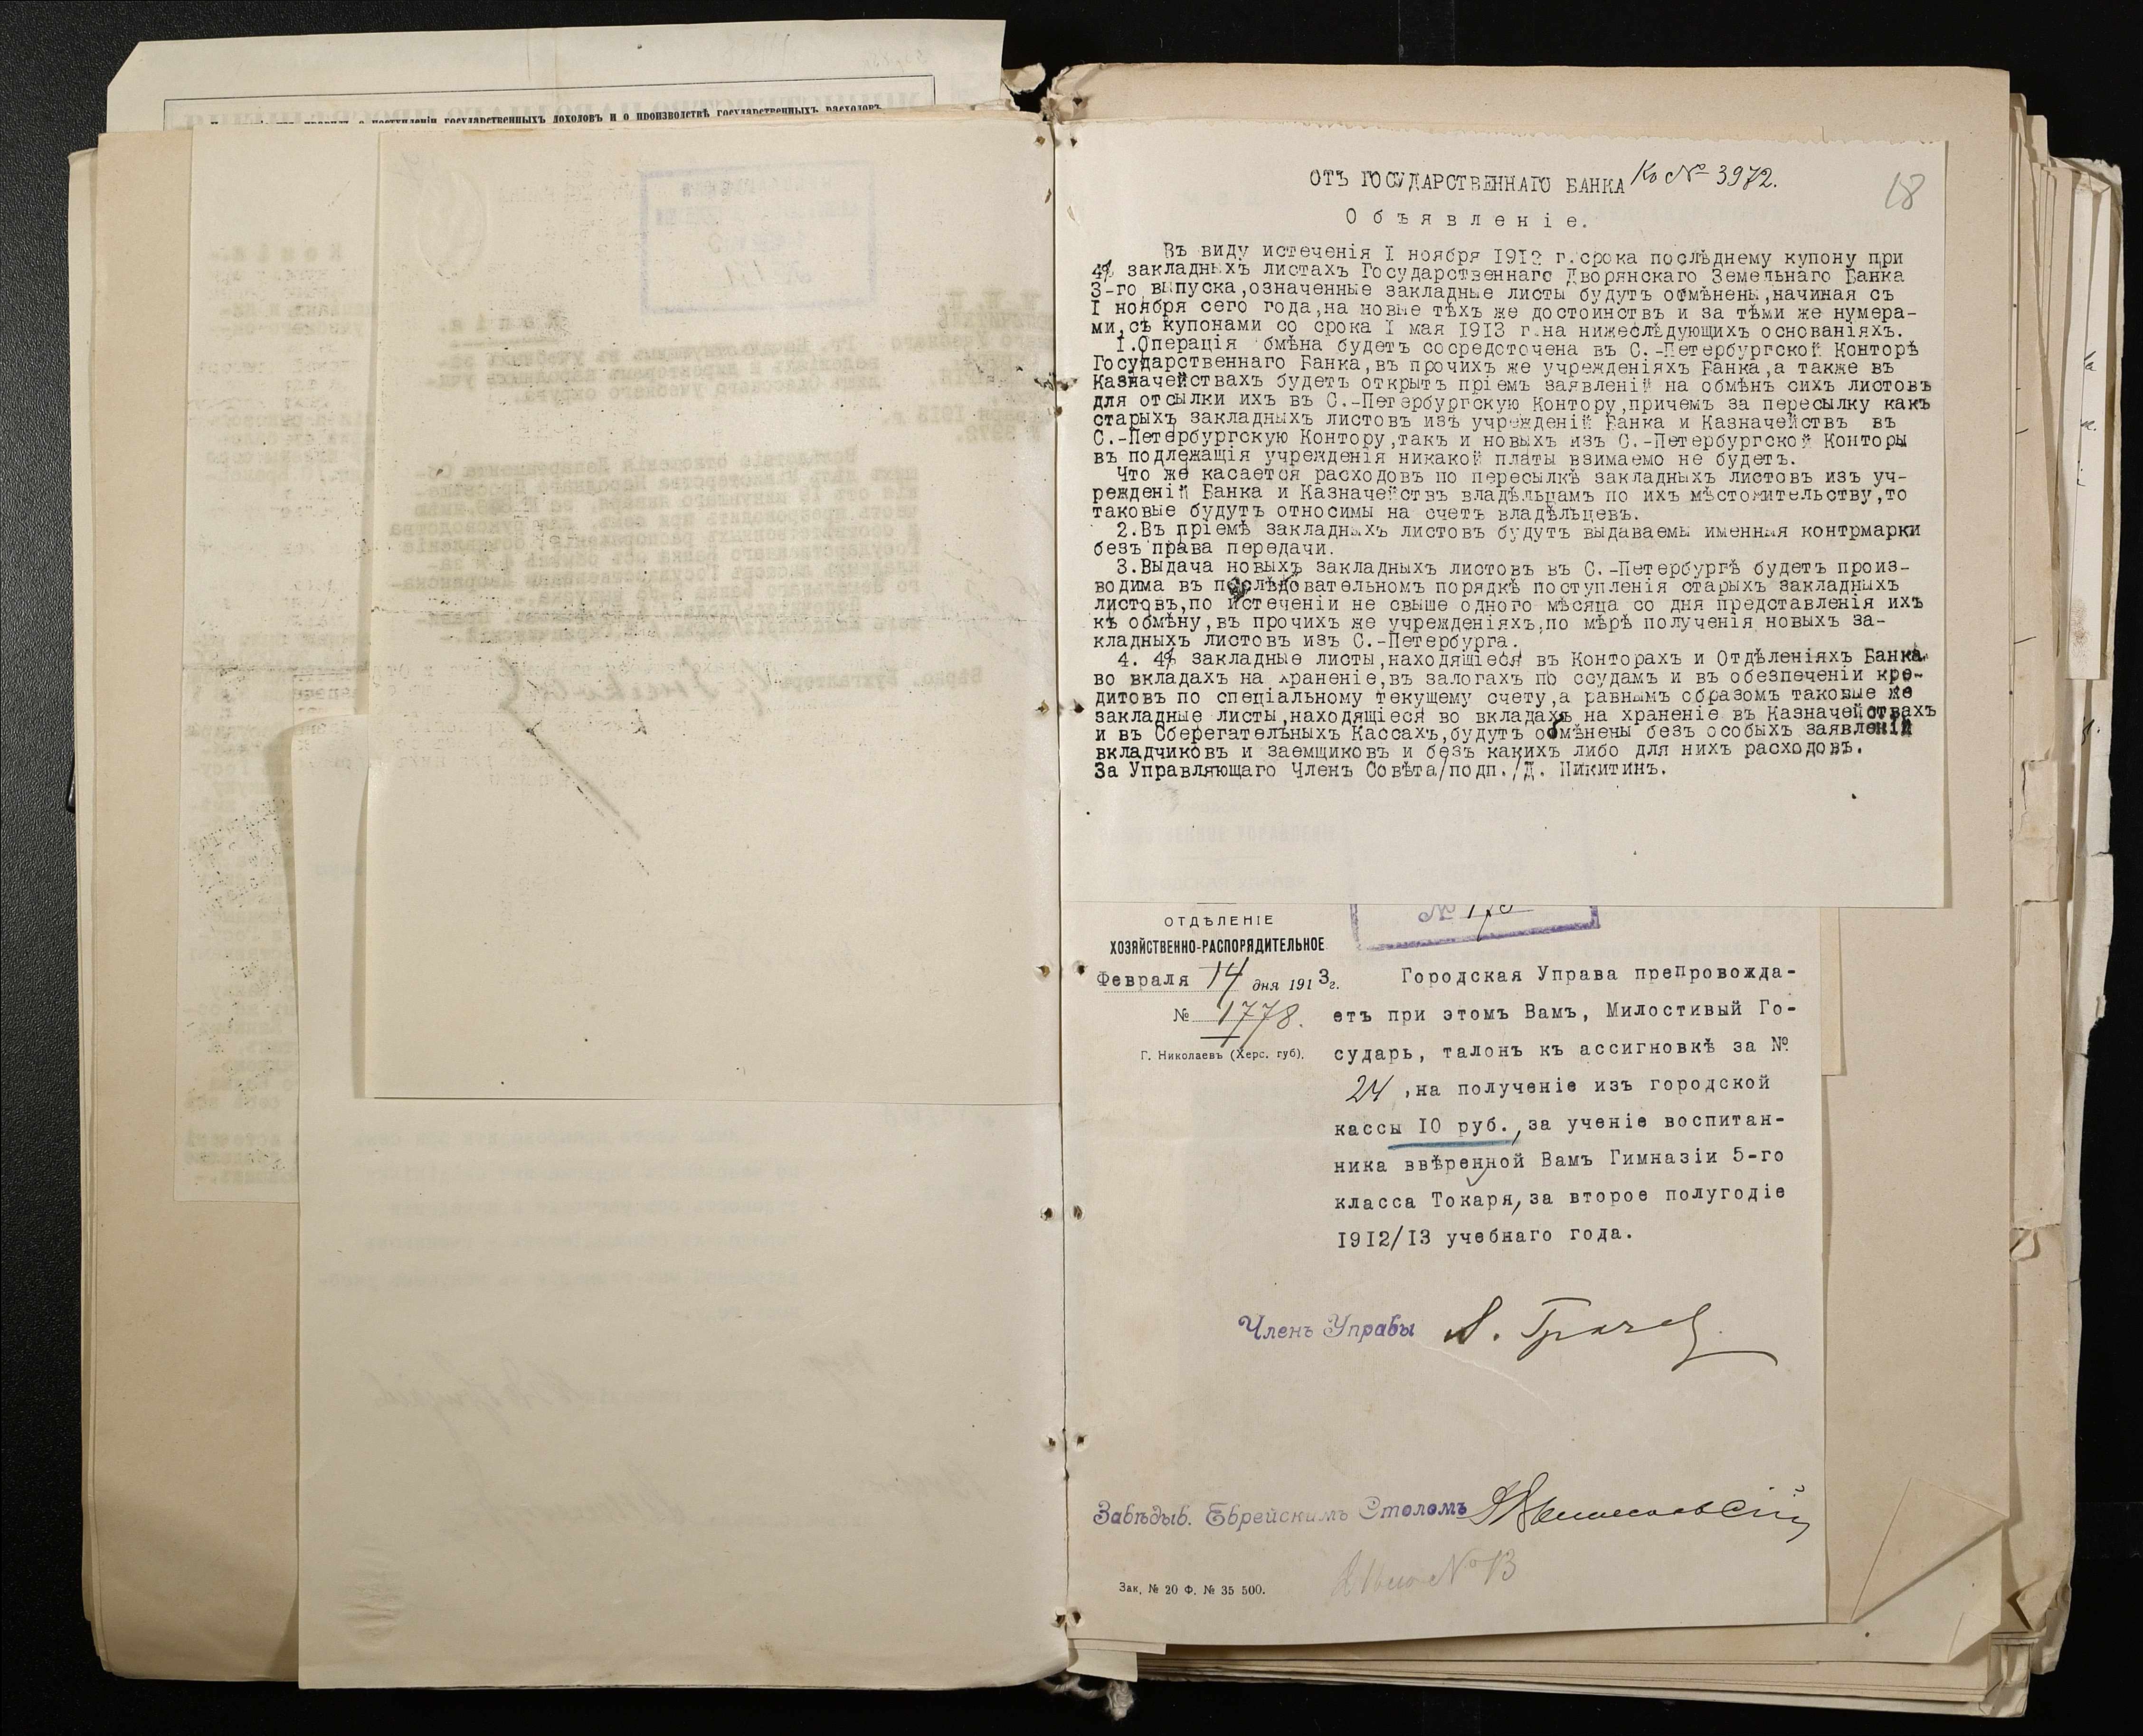 государственныхъ доходовъ и о производствѣ государственныхъ расходовъ
ОТЪ ГОСУДАРСТВЕННАГО БАНКА Ко № 3972.
18
Объявленіе.
Въ виду истеченія I ноября 1912 г.срока послѣднему купону при
4% закладныхъ листахъ Государственнаго Дворянскаго Земельнаго Банка
3-го выпуска,означенные закладные листы будутъ обмѣнены,начиная съ
I ноября сего года,на новые тѣхъ же достоинствъ и за тѣми же нумера-
ми,съ купонами со срока I мая 1913 г.на нижеслѣдующихъ основаніяхъ.
1.Операція обмѣна будетъ сосредсточена въ С.-Петербургской Конторѣ
Государственнаго Банка,въ прочихъ же учрежденіяхъ Банка,а также въ
Казначействахъ будетъ открытъ пріемъ заявленій на обмѣнъ сихъ листовъ
для отсылки ихъ въ С.-Петербургскую Контору,причемъ за пересылку какъ
старыхъ закладныхъ листовъ изъ учрежденій Банка и Казначействъ въ
С.-Петербургскую Контору,такъ и новыхъ изъ С.-Петербургской Конторы
въ подлежащія учрежденія никакой платы взимаемо не будетъ.
Что же касается расходовъ по пересылкѣ закладныхъ листовъ изъ уч-
режденій Банка и Казначействъ владѣльцамъ по ихъ мѣстожительству,то
таковые будутъ относимы на счетъ владѣльцевъ.
2.Въ пріемѣ закладныхъ листовъ будутъ выдаваемы именныя контрмарки
безъ права передачи.
3.Выдача новыхъ закладныхъ листовъ въ С.-Петербургѣ будетъ произ-
водима въ послѣдовательномъ порядкѣ поступленія старыхъ закладныхъ
листовъ,по истеченіи не свыше одного мѣсяца со дня представленія ихъ
къ обмѣну,въ прочихъ же учрежденіяхъ,по мѣрѣ полученія новыхъ за-
кладныхъ листовъ изъ С.-Петербурга.
4. 4% закладные листы,находящіеся въ Конторахъ и Отдѣленіяхъ Банка
во вкладахъ на храненіе,въ залогахъ по ссудамъ и въ обезпеченіи кре-
дитовъ по спеціальному текущему счету,а равнымъ образомъ таковые же
закладные листы,находящіеся во вкладахъ на храненіе въ Казначействахъ
и въ Сберегательныхъ Кассахъ,будутъ обмѣнены безъ особыхъ заявленій
вкладчиковъ и заемщиковъ и безъ какихъ либо для нихъ расходовъ.
За Управляющаго Членъ Совѣта/подп./Д. Никитинъ.
№
ОТДѢЛЕНІЕ
ХОЗЯЙСТВЕННО-РАСПОРЯДИТЕЛЬНОЕ
Февраля 14 дня 1913г.
№ 1778.
Г. Николаевъ (Херс. губ).
Городская Управа препровожда-
етъ при этомъ Вамъ, Милостивый Го-
сударь, талонъ къ ассигновкѣ за №
24 ,на полученіе изъ городской
кассы 10 руб.,за ученіе воспитан-
ника ввѣренной Вамъ Гимназіи 5-го
класса Токаря,за второе полугодіе
1912/13 учебнаго года.
Членъ Управы
Завѣдыв. Еврейскимъ Столомъ
№ 13
Зак, № 20 Ф. № 35 500.